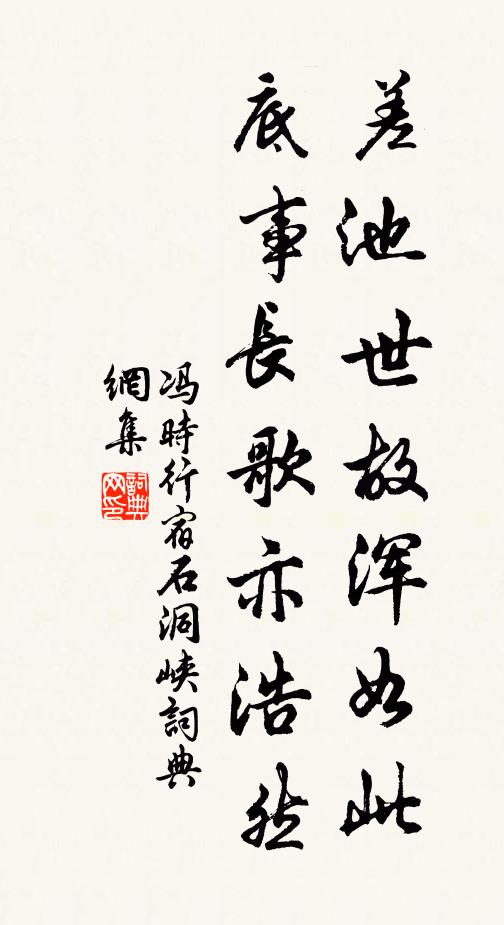 差池世故浑如此
底事長歌亦浩然
冯時行宿石洞峡詞典
網集
詞典网印